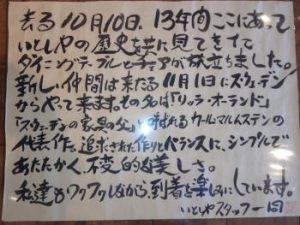 去る10月10日、13年間ここにあって
いとしやの歴史を共に見てきた
ダイニングテーブルとチェアが旅立ちました。
新しい仲間は来たる11月1日にスウェーデン
からやって来ます。その名は「リッラ・オーランド」
「スウェーデンの家具の父」と呼ばれるカール・マルムステンの
代表作。追求された作りとバランスに、シンプルで
あたたかく、不変的な美しさ。
私達もワクワクしながら、到着を楽しみにしています。
いとしやスタッフ一同